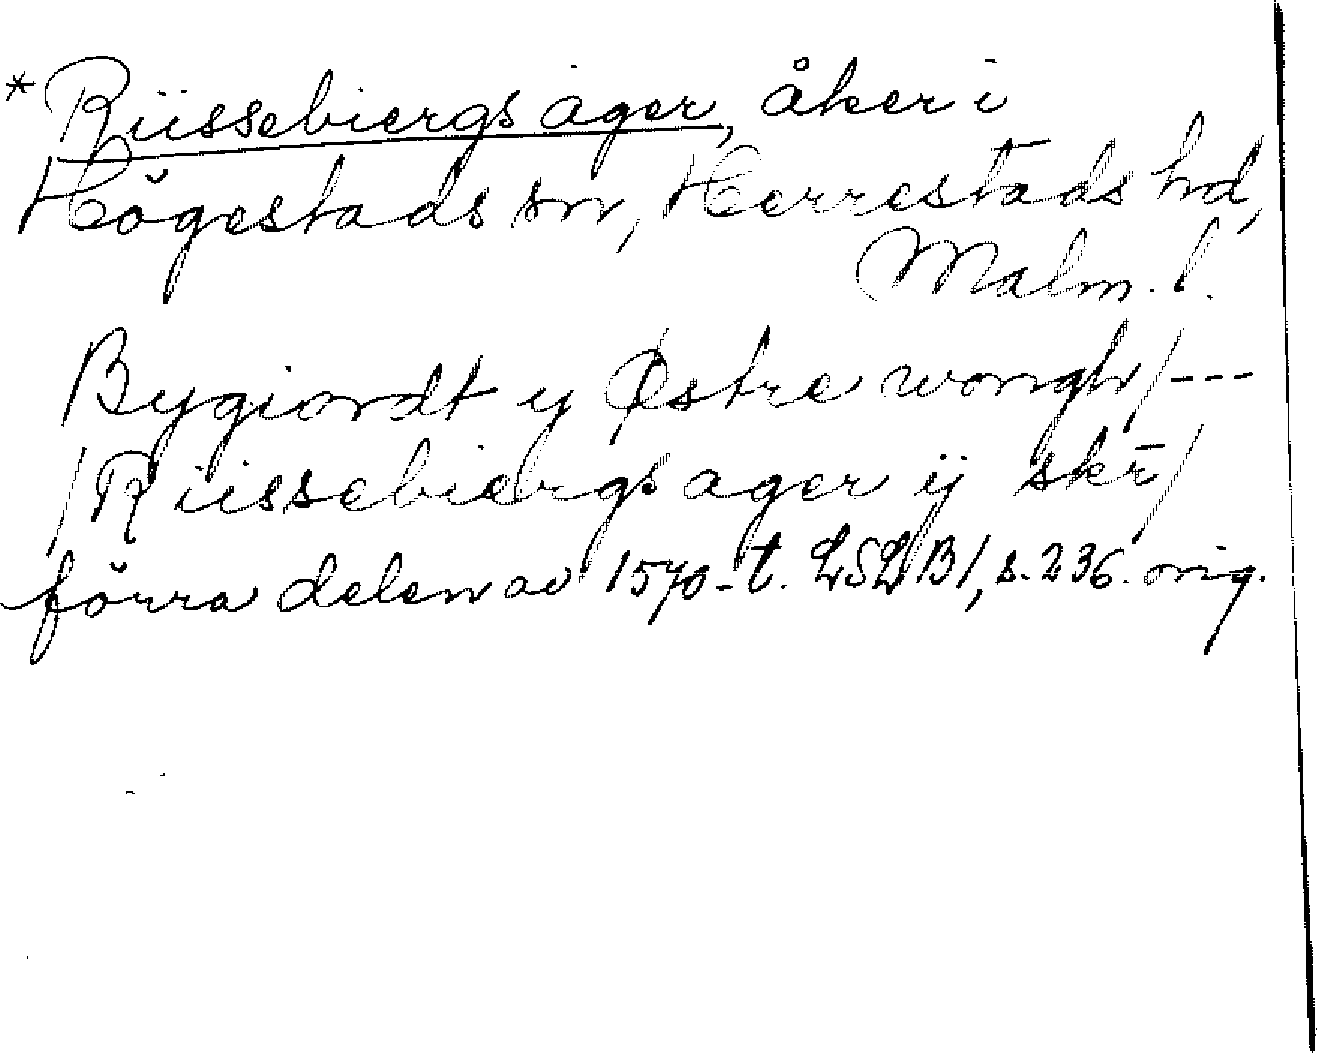 * Riissebiergs ager, åker i
Högestads sn, Herrestads hd,
Malm. l.
Bygiordt y Østre wongh / ---
/ Riissebiergs ager ij skr̄ /
förra delen av 1570-t. LSLB1, s. 236. orig.